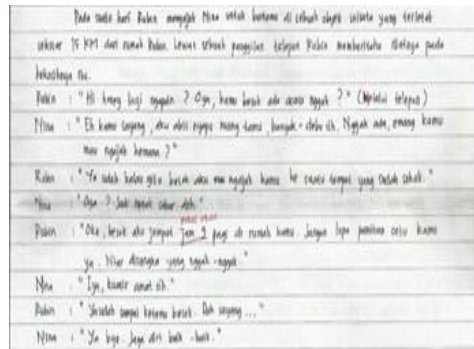 Pada suatu hari Robin mengajak Nina untuk bertamu di sebuah objek wisata yang terletak
sekitar 15 KM dari rumah Robin. Lewat sebuah panggilan telepon Robin memberitahu pada
kekasihnya itu.
Robin : "Hi honey lagi ngapain ? Oya, kamu besok ada acara nggak ?" (melalui telepon)
Nina : "Eh kamu sayang, aku abis nyapu ruang tamu, banyak debu sih. Nggak ada, emang kamu
mau ngajak kemana ?"
Robin : "Ya udah kalau gitu besok aku mau ngajak kamu ke suatu tempat yang indah sekali."
Nina : "Oya ? Jadi nggak sabar deh."
Robin : "Oke, besok aku jemput Jam 9 pagi di rumah kamu. Jangan lupa pamitan ortu kamu
ya. Ntar disangka yang nggak-nggak."
Nina : "Iya, bawel amat sih."
Robin : "Yasudah sampai ketemu besok. Dah sayang..."
Nina : "Ya bye. Jaga diri baik-baik."